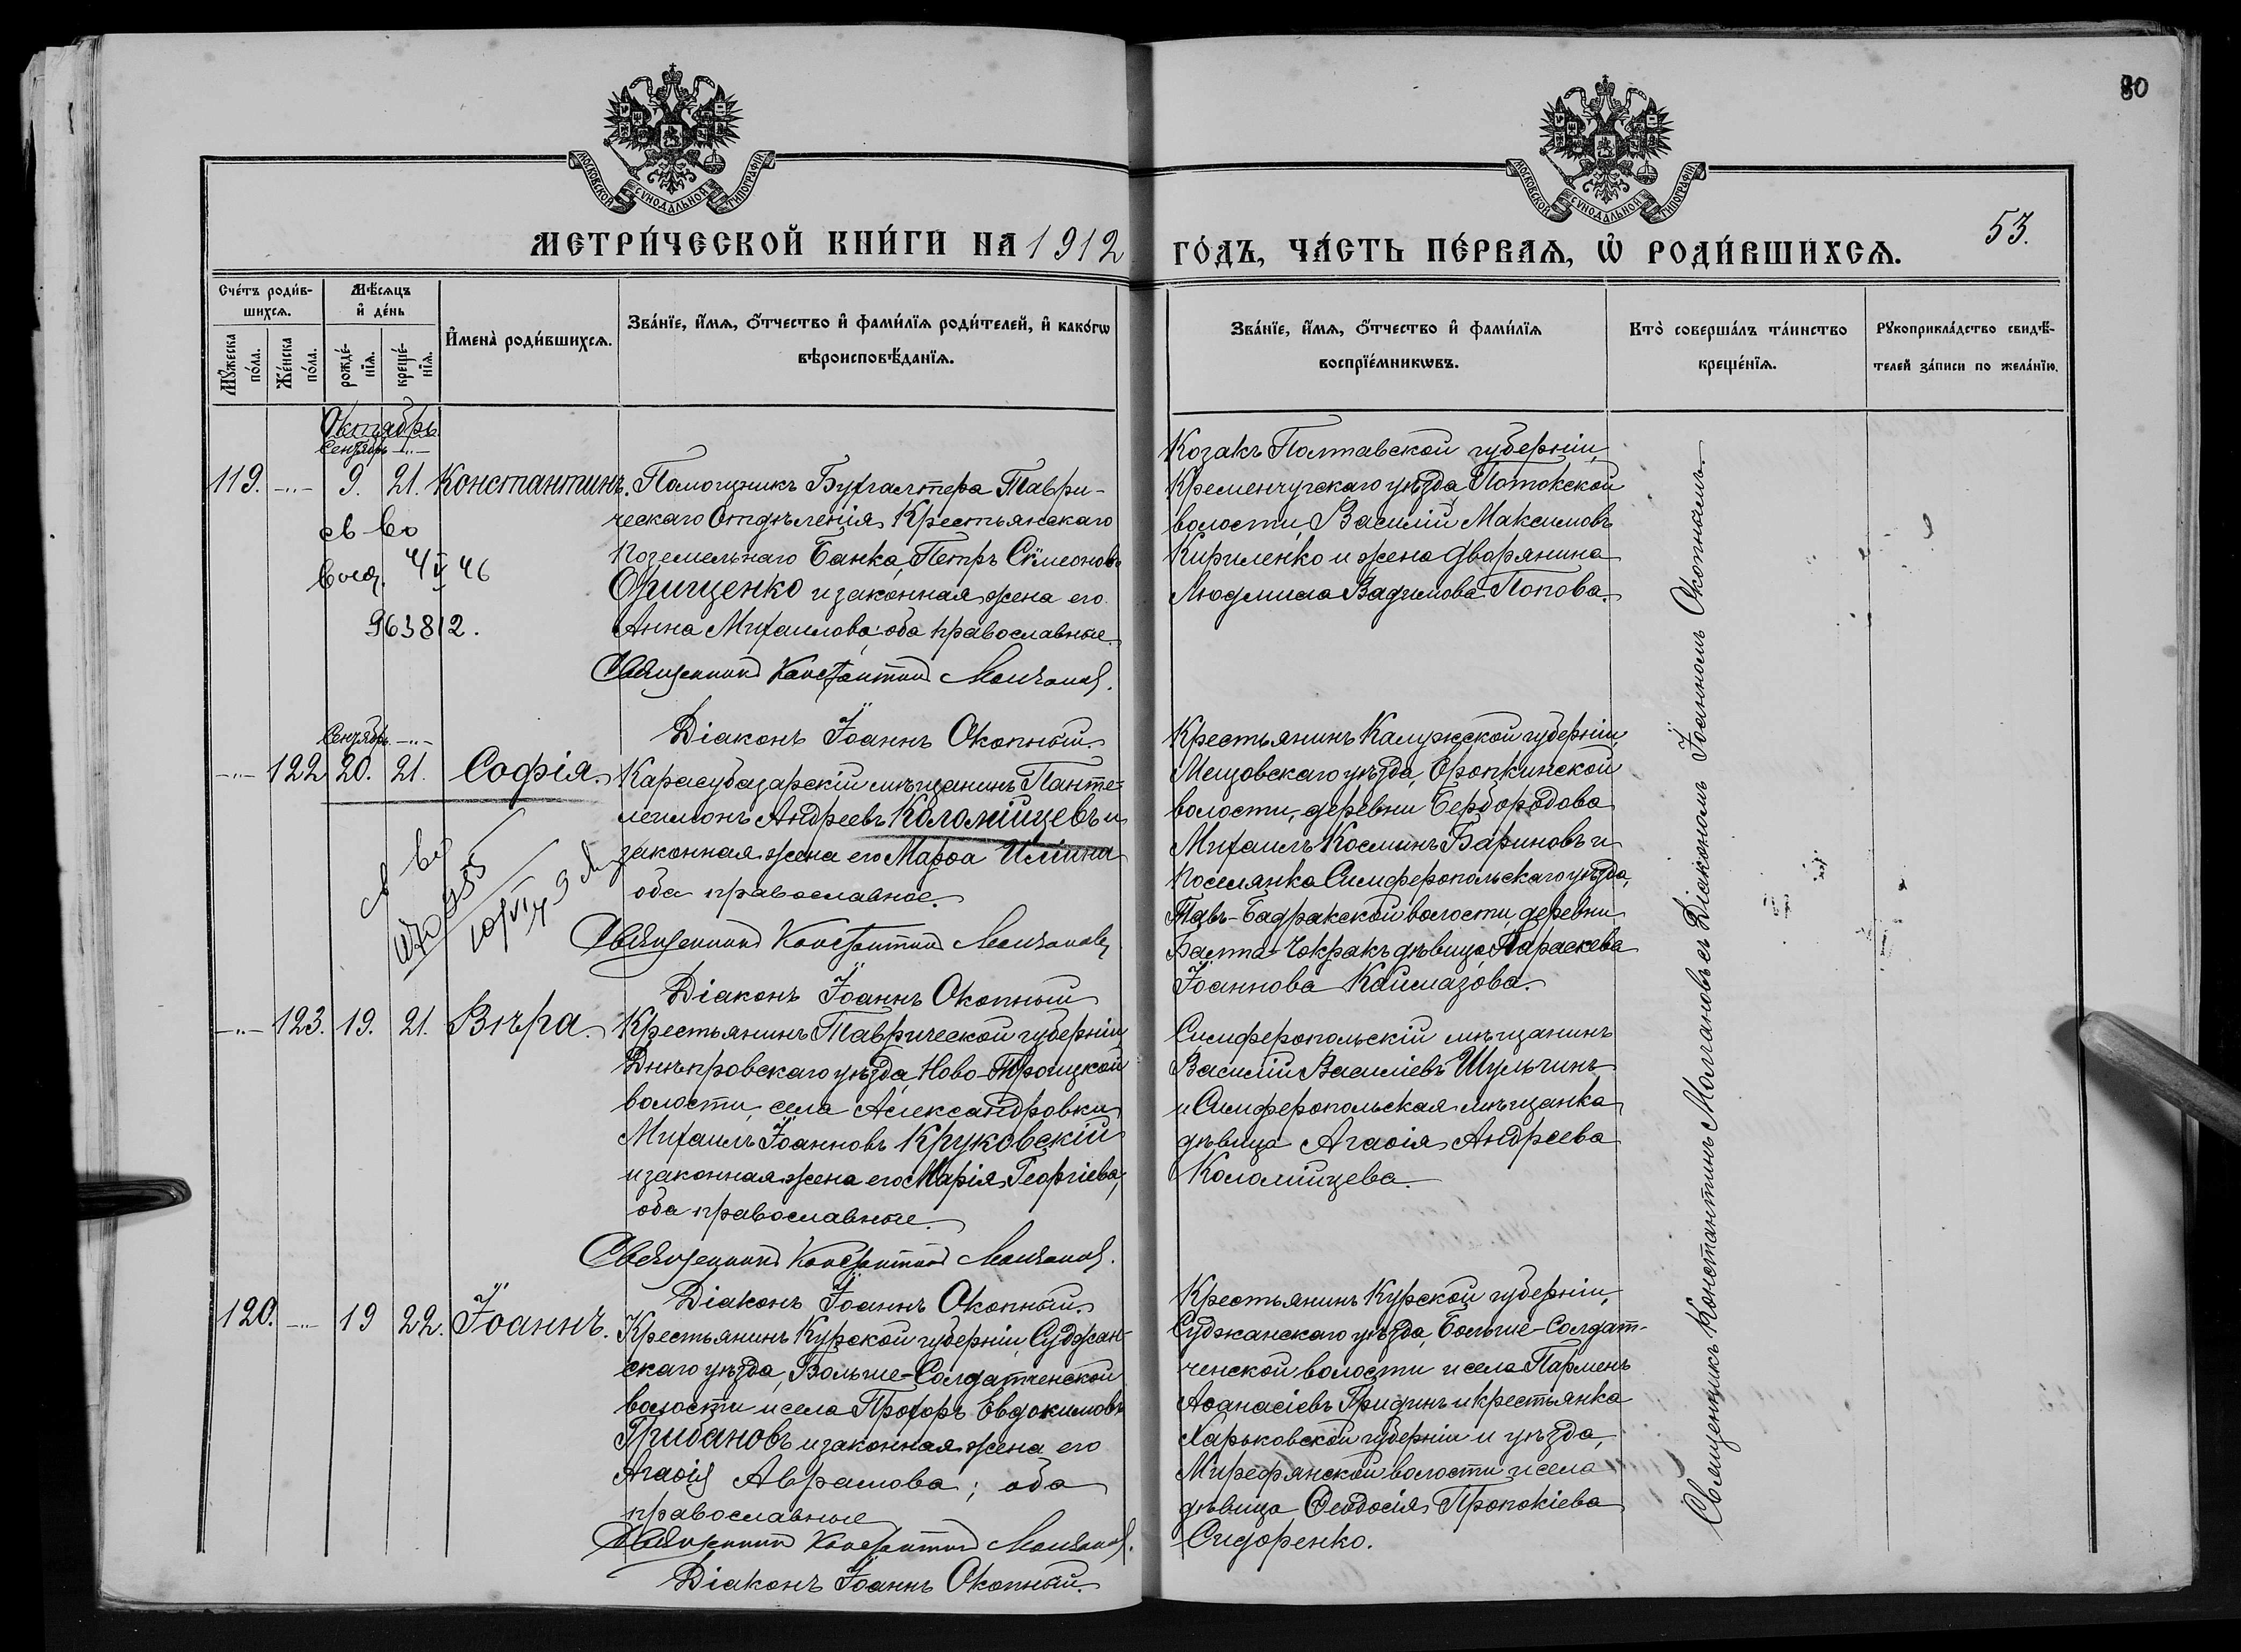 80
МОСКОВСКОЙ СѴНОДАЛЬНОЙ ТИПОГРАФІИ
МОСКОВСКОЙ СѴНОДАЛЬНОЙ ТИПОГРАФІИ
МЕТРИ́ЧЕСКОЙ КНИ́ГИ НА 1912
ГО́ДЪ, ЧА́СТЬ ПЕ́РВАѦ, Ѡ҆ РОДИ́ВШИХСѦ.
53.
Сче́тъ роди́в-
шихсѧ.
Мꙋ́жеска
по́ла.
Же́нска
по́ла.
Мѣ́сѧцъ
и҆ де́нь
рожде́-
нїѧ.
креще́-
нїѧ.
И҆мена̀ роди́вшихсѧ.
Зва́нїе, и҆́мѧ, ѻ҆́тчество и҆ фами́лїѧ роди́телей, и҆ како́гѡ
вѣроисповѣ́данїѧ.
Зва́нїе, и҆́мѧ, ѻ҆́тчество и҆ фами́лїѧ
воспрїе́мникѡвъ.
Кто̀ соверша́лъ та́инство
креще́нїѧ.
Рꙋкоприкла́дство свидѣ́-
телей за́писи по жела́нїю.
Октябрь
Сентябрь -"-
119. -"- 9. 21. Константинъ.
Помощникъ Бухгалтера Таври-
ческаго Отдѣленія Крестьянскаго
Поземельнаго Банка, Петръ Сѵмеоновъ
Онищенко и законная жена его
Анна Михаилова; оба православные.
Священникъ Константинъ Молчановъ.
Діаконъ Іоаннъ Окопный.
св во
46
963812.
Козакъ Полтавской губерніи,
Кременчугскаго уѣзда, Потокской
волости, Василій Максимовъ
Кириленко и жена дворянина
Людмила Вадимова Попова.
Сентябрь -"-
-"- 122 20. 21. Софія.
Карасубазарскій мѣщанинъ Панте-
леимонъ Андреевъ Коломійцевъ и
законная жена его Марѳа Ильина
оба православные.
Священникъ Константинъ Молчановъ
Діаконъ Іоаннъ Окопный
Крестьянинъ Калужской губерніи,
Мещовскаго уѣзда,
волости, деревни
Михаилъ Космынъ Бариновъ и
поселянка Симферопольскаго уѣзда,
Тавъ-Бадракской волости, деревни
Балта-Чокракъ дѣвица Параскева
Іоаннова Каймазова.
-"- 123. 19. 21. Вѣра.
Крестьянинъ Таврической губерніи
Днѣпровскаго уѣзда, Ново-Троицкой
волости, села Александровки
Михаилъ Іоанновъ Круковскій
и законная жена его Марія Георгіева,
оба православные.
Священникъ Константинъ Молчановъ.
Діаконъ Іоаннъ Окопный.
Симферопольскій мѣщанинъ
Василій Василіевъ Шульгинъ
и Симферопольская мѣщанка
дѣвица Агаѳія Андреева
Коломійцева.
120. -"- 19 22. Іоаннъ.
Крестьянинъ Курской губерніи, Суджан-
скаго уѣзда, Больше-Солдатченской
волости и села Прохоръ Евдокимовъ
Грибановъ и законная жена его
Агаѳія Аврамова; оба
православные
Священникъ Константинъ Молчановъ.
Діаконъ Іоаннъ Окопный.
Крестьянинъ Курской губерніи,
Суджанскаго уѣзда, Больше-Солдат-
ченской волости и села Парменъ
Аѳанасіевъ Гридинъ и крестьянка
Харьковской губерніи и уѣзда,
Мерефянской волости и села
дѣвица Ѳеодосія Прокопіева
Сидоренко.
Священникъ Константинъ Молчановъ съ Діакономъ Іоанномъ Окопнымъ.